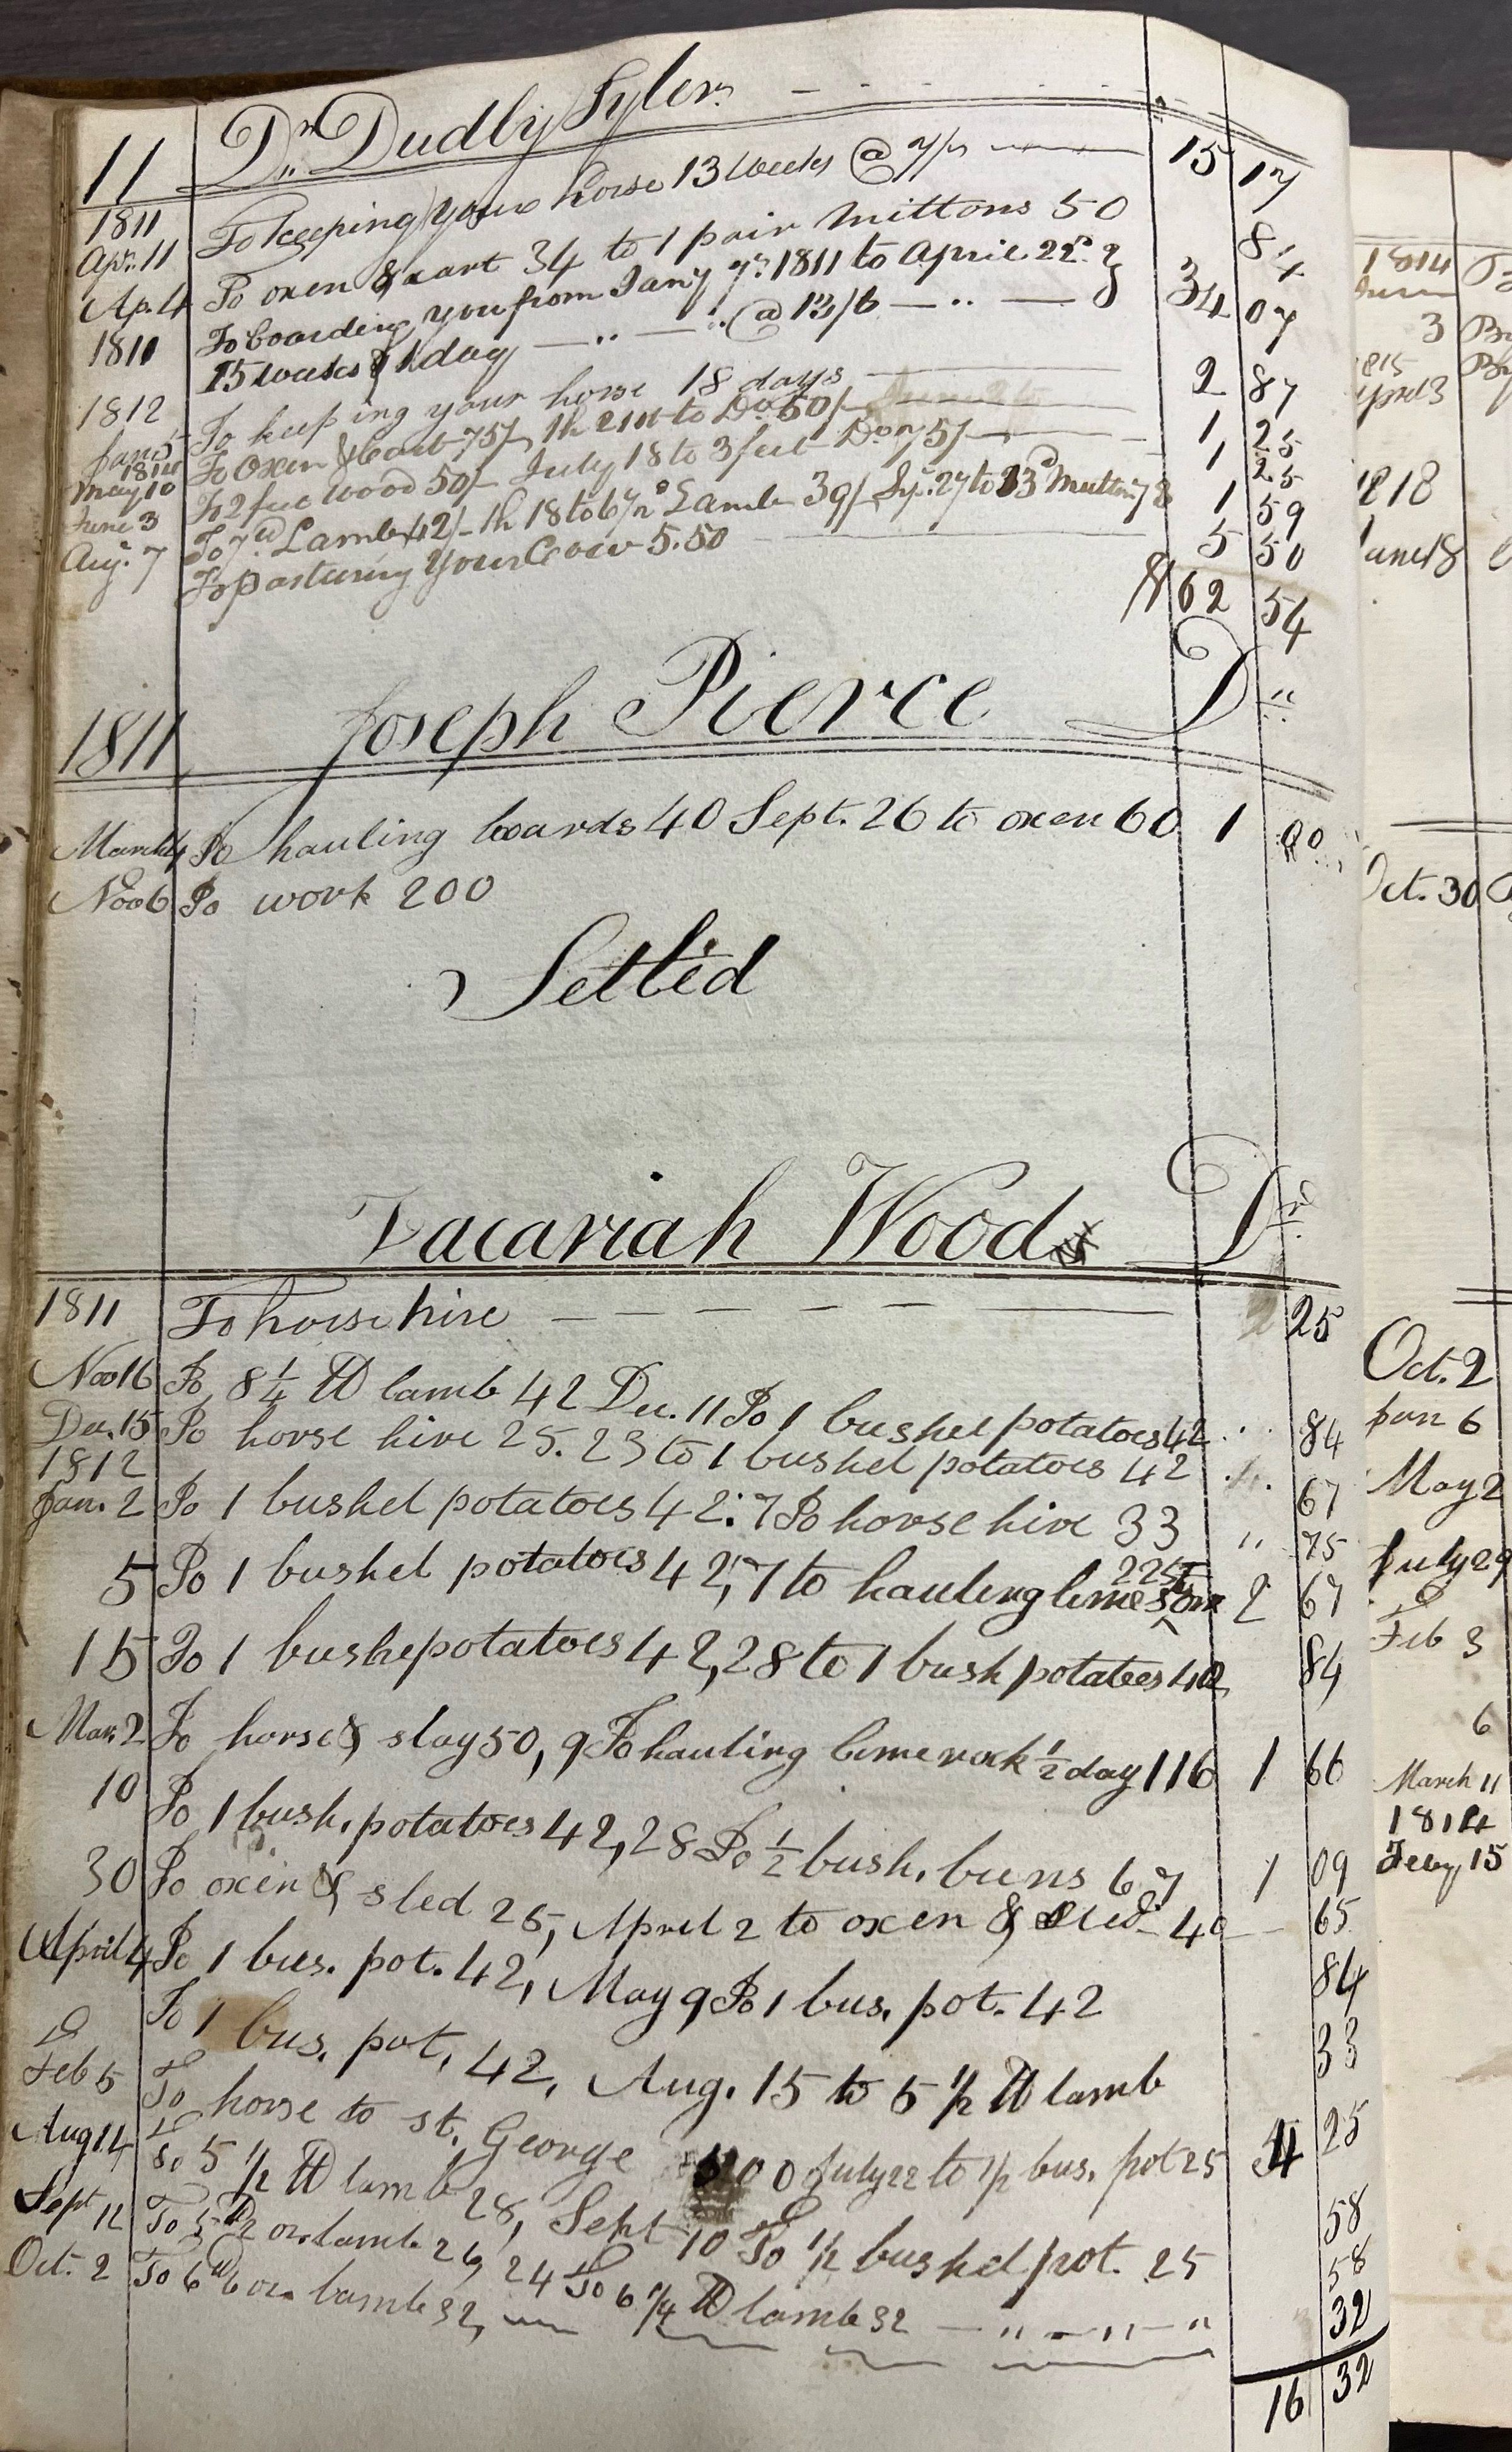 11 Dr. Dudley Tyler
1811
Apr. 11 To keeping your horse 13 weeks @ 7/ 15 17
Ap. 4 To oxen & cart 34 to 1 pair mittons 50 84
1811 To boarding you from Jany 7th 1811 to April 22d
15 weeks & 1 day @ 13/6 34 07
1812 To keeping your horse 18 days 2 87
Jan 5 To Oxen & Cart 75/ th 21st to Do 50/ 1 25
1814
May 10 To 2 feet wood 50/ July 18 to 3 feet Do 75/ 1 25
June 3 To 7 lb Lamb 42/ th 18 to 6 1/2 Lamb 39/ Sp. 27 to 13 lb Mutton 78 1 59
Aug. 7 To pasturing your Cow 5.50 5 50
$ 62 54
1811 Joseph Pierce Dr
March 4 To hauling boards 40 Sept. 26 to oxen 60 1 00
Nov 6 To work 200
Setled
Zacariah Wood Dr
1811 To horse hire 25
Nov 16 To 8 1/4 lb lamb 42 Dec. 11 To 1 bushel potatoes 42 84
Dec. 15 To horse hire 25. 23 to 1 bushel potatoes 42 67
1812
Jan. 2 To 1 bushel potatoes 42. 7 To horse hire 33 " 75
5 To 1 bushel potatoes 42, 7 to hauling lime 225 2 67
15 To 1 bushe potatoes 42, 28 to 1 bush potatoes 42 84
Mar. 2 To horse & slay 50, 9 To hauling lime rock 1/2 day 116 1 66
10 To 1 bush. potatoes 42, 28 To 1/2 bush. beens 67 1 09
30 To oxen & sled 25, April 2 to oxen & sled 40 65
April 4 To 1 bus. pot. 42, May 9 To 1 bus. pot. 42 84
To 1 bus. pot. 42, Aug. 15 to 5 1/2 lb lamb 33
Feb 5 To horse to st. George 00 July 22 to 1/2 bus. pot 25 4 25
Aug 14 To 5 1/2 lb lamb 28, Sept 10 To 1/2 bushel pot. 25 58
Sept 12 To 5 lb 2 oz lamb 26, 24 To 6 1/4 lb lamb 32 58
Oct. 2 To 6 lb 6 oz lamb 32, 32
16 32
1814
June
3
1815
April 3
1818
June 18
Oct. 30
Oct. 2
Jan 6
May 2
July 29
Feb 3
6
March 11
1814
Feby 15